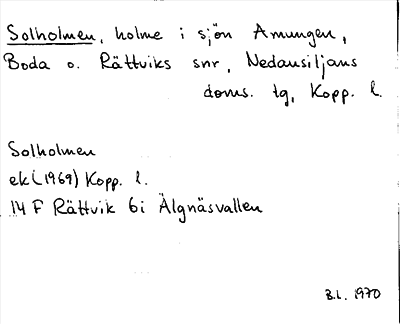 Solholmen, holme i sjön Amungen,
Boda o. Rättviks snr, Nedansiljans
doms. tg, Kopp. l.
Solholmen
ek (1969) Kopp. l.
14 F Rättvik 6i Älgnäsvallen
B.L. 1970